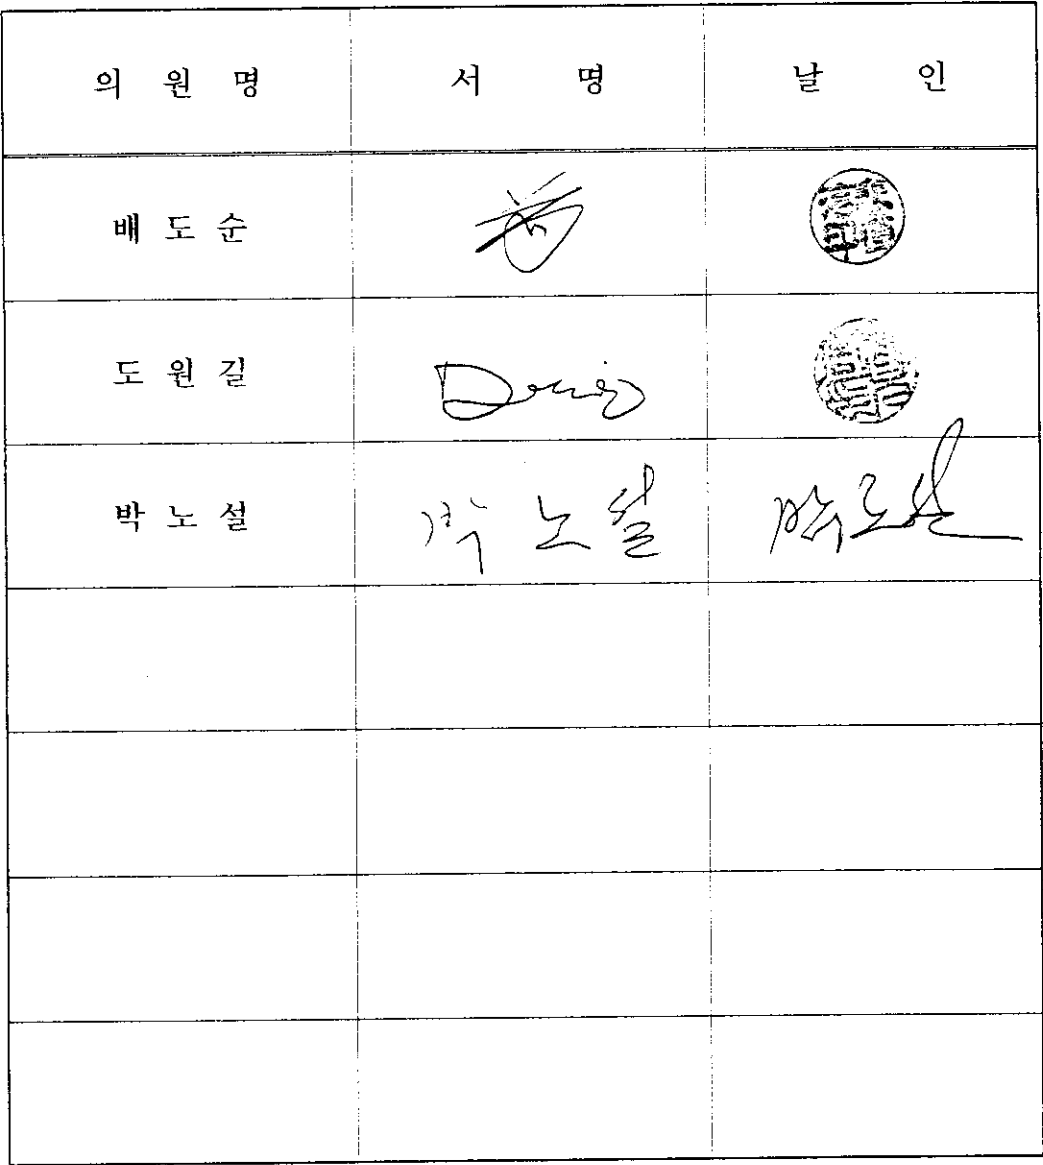 의 원 명 서 명 날 인
배 도 순
도 원 길
박 노 설 박 노 설 박노설